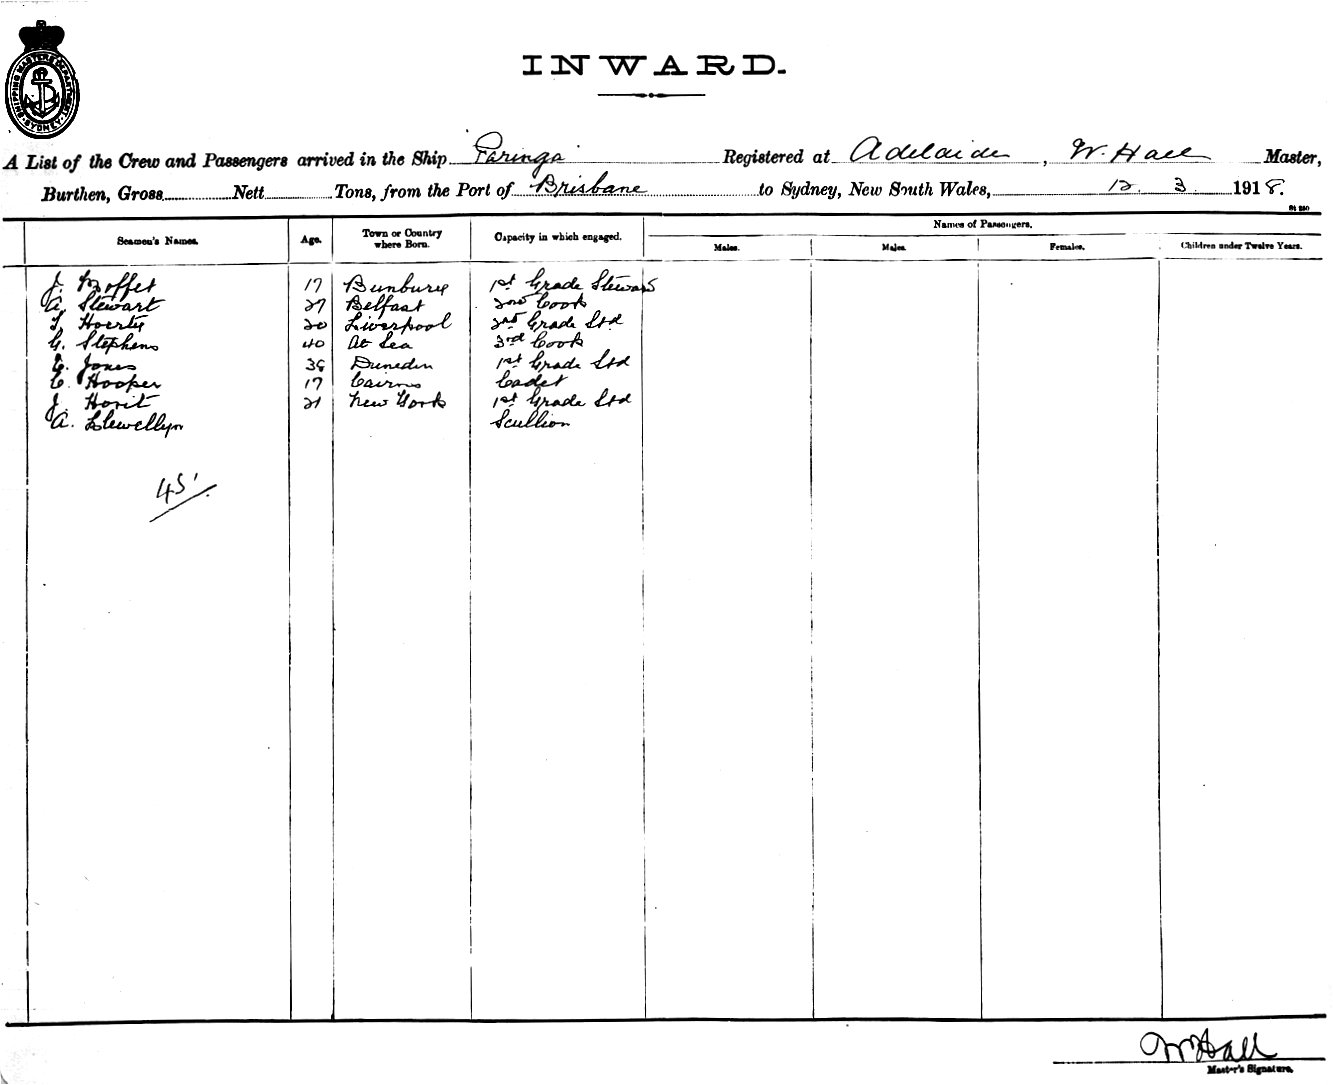 SHIPPING MASTERS DEPARTMENT SYDNEY
INWARD.
A List of the Crew and Passengers arrived in the Ship Paringa Registered at Adelaide, W. Hall Master,
Burthen, Gross Nett Tons, from the Port of Brisbane to Sydney, New South Wales, 12. 3. 1918.
Seamen's Names. Age. Town or Country where Born. Capacity in which engaged. Names of Passengers.
Males. Males. Females. Children under Twelve Years.
J. Moffet 17 Bunbury 1st Grade Steward
A. Stewart 27 Belfast 2nd Cook
20 Liverpool 2nd Grade Std
G. Stephens 40 At Sea 3rd Cook
E. Jones Dunedin 1st Grade Std
C. Hooper 17 Cairns Cadet
J. 21 New York 1st Grade Std
A. Llewellyn Scullion
45
W Hall
Master's Signature.